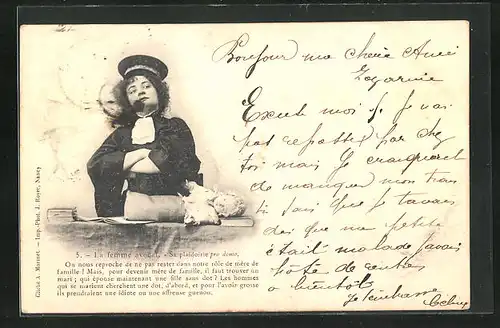 Bonjour ma chère Amie
Excuse moi si je n'ai
pas repassée par chez
toi mais je craignait
de manquer mon train
tu sais que je t'avais
dis que ma petite
était malade j'avais
hâte de rentrer
a bientôt
Je t'embrasse
5. - La femme avocat. - Sa plaidoirie pro domo.
On nous reproche de ne pas rester dans notre rôle de mère de
famille ! Mais, pour devenir mère de famille, il faut trouver un
mari ; qui épouse maintenant une fille sans dot ? Les hommes
qui se marient cherchent une dot, d'abord, et pour l'avoir grosse
ils prendraient une idiote ou une affreuse guenon.
Cliché A. Mermet. - Imp.-Phot. J. Royer, Nancy